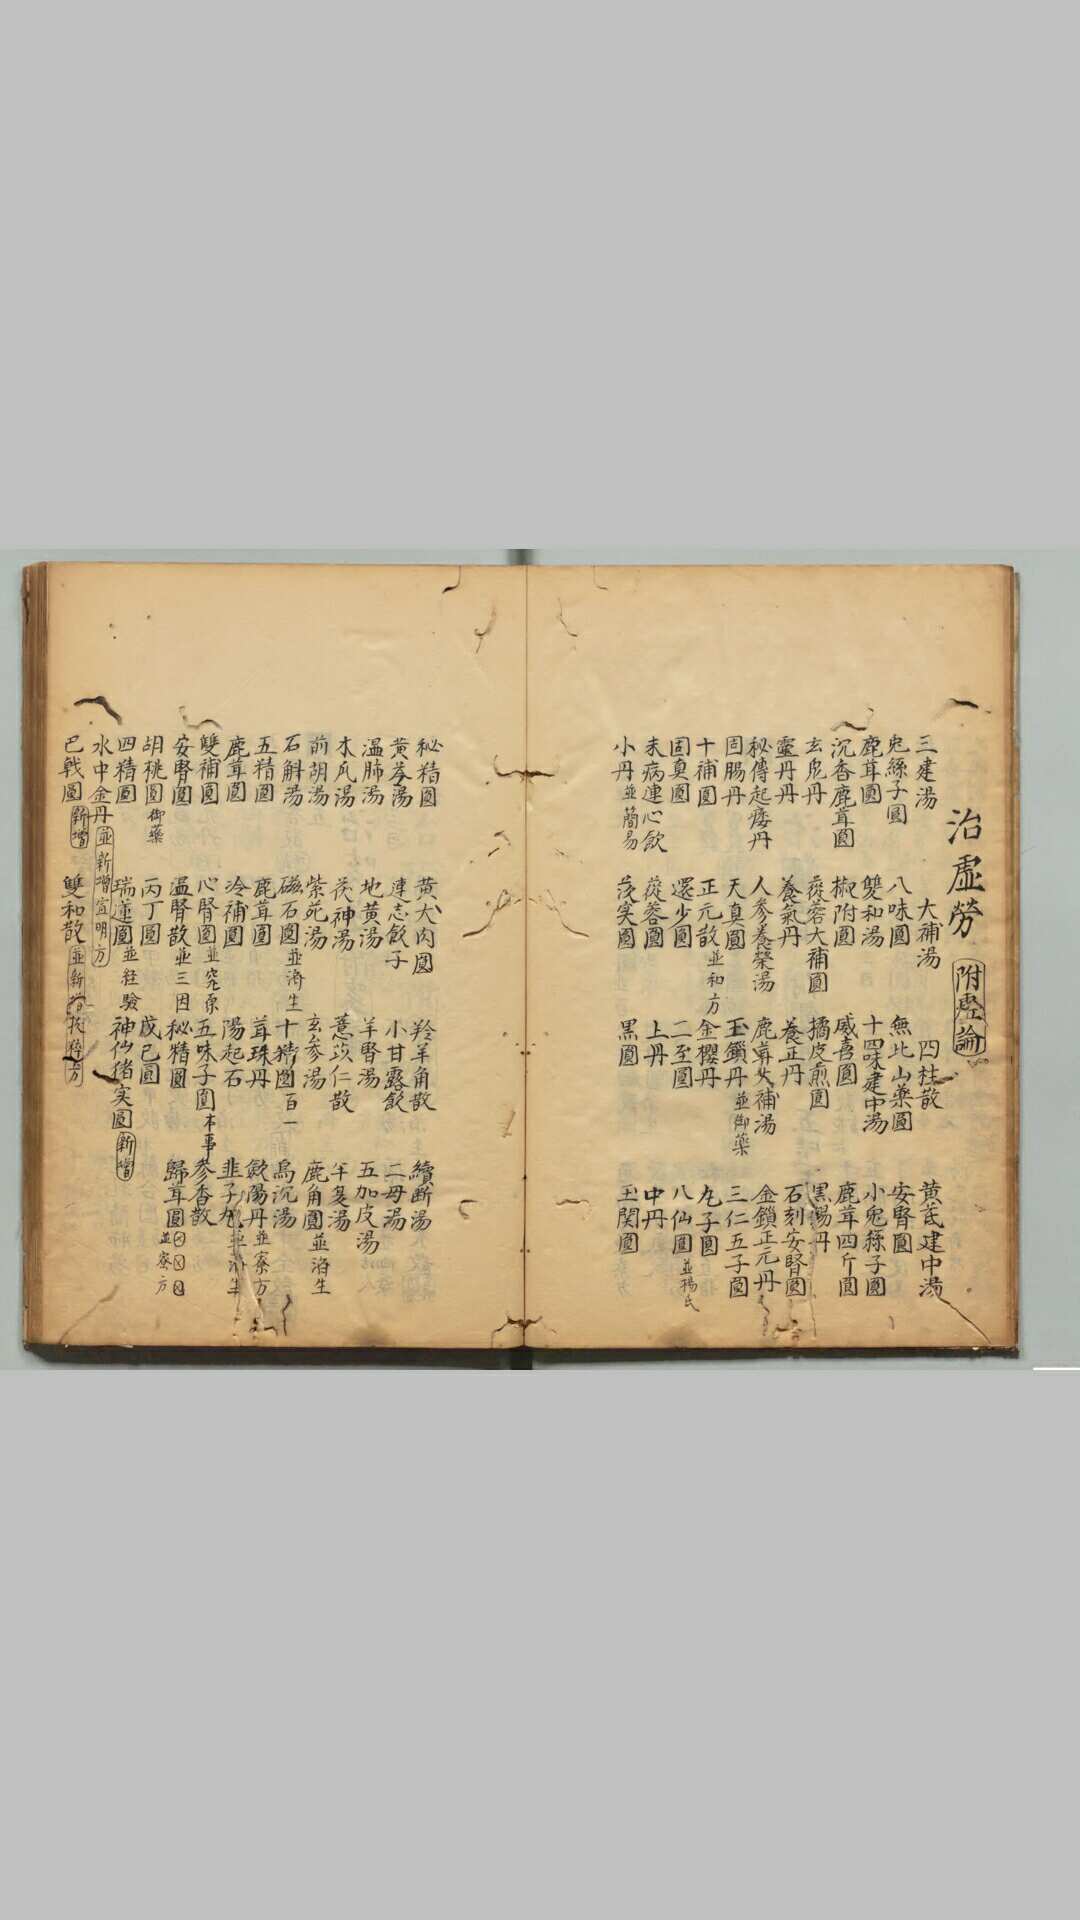 治虛勞 附痙論
三建湯 大補湯 四柱散 黃芪建中湯
兔絲子圓 八味圓 無比山藥圓 安腎圓
鹿茸圓 雙和湯 十四味建中湯 小兔絲子圓
沉香鹿茸圓 椒附圓 威喜圓 鹿茸四斤圓
玄兔丹 蓯蓉大補圓 橘皮煎圓 黑湯丹
靈丹丹 養氣丹 養正丹 石刻安腎圓
秘傳起痿丹 人參養榮湯 鹿茸大補湯 金鎖正元丹
固腸丹 天真圓 玉鎖丹 並御藥 三仁五子圓
十補圓 正元散 並和方 金櫻丹 九子圓
固真圓 還少圓 二至圓 八仙圓 並楊氏
未病連心飲 蓯蓉圓 上丹 中丹
小丹 並簡易 茨実圓 黑圓 玉関圓
秘精圓 黃犬肉圓 羚羊角散 續斷湯
黃芩湯 遠志飲子 小甘露飲 二母湯
溫肺湯 地黃湯 羊腎湯 五加皮湯
木瓜湯 茯神湯 薏苡仁散 半夏湯
前胡湯 紫苑湯 玄參湯 鹿角圓 並濟生
石斛湯 磁石圓 並濟生 十精圓 百一 烏沉湯
五精圓 鹿茸圓 茸珠丹 歛陽丹 並寮方
鹿茸圓 冷補圓 陽起石 韭子丸
雙補圓 心腎圓 並究原 五味子圓 本事 參香散
安腎圓 溫腎散 並三因 秘精圓 歸茸圓 並寮方
胡桃圓 御藥 丙丁圓 戊己圓
四精圓 瑞蓮圓 並経驗 神仙猪実圓 新增
水中金丹 並新增宣明方
巴戟圓 新增 雙和散